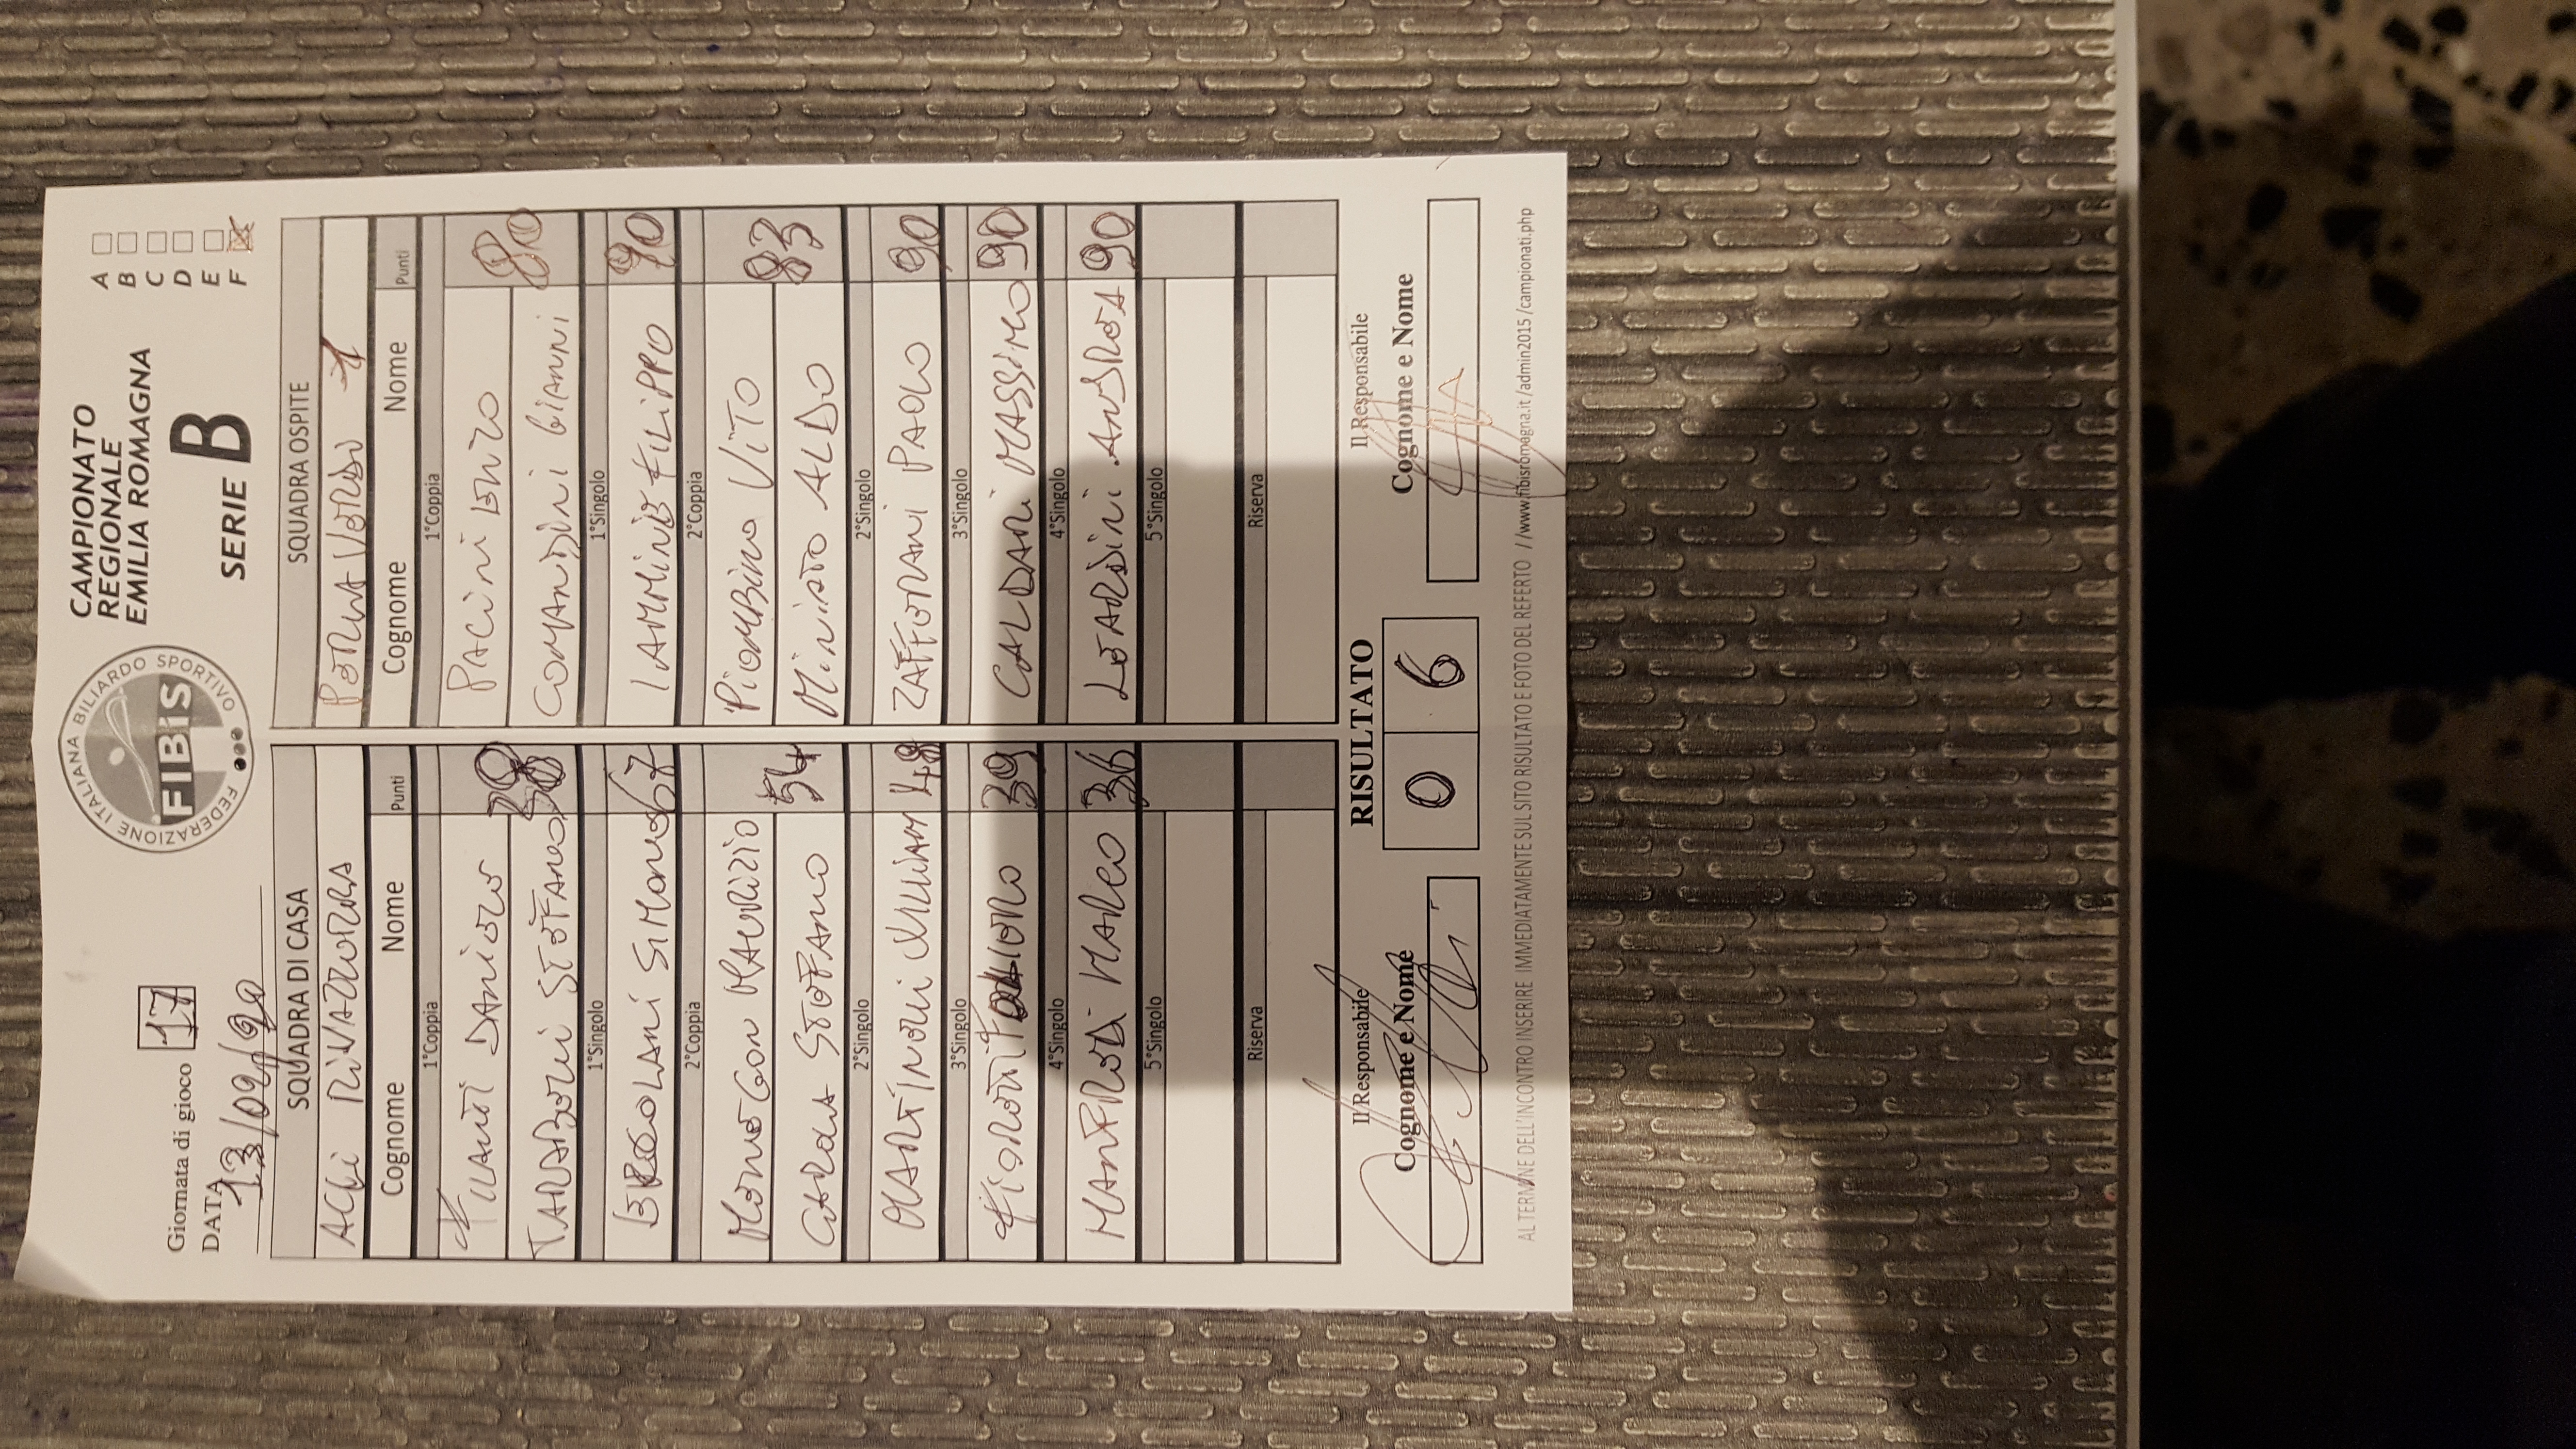 FEDERAZIONE ITALIANA BILIARDO SPORTIVO
FIBiS
CAMPIONATO
REGIONALE
EMILIA ROMAGNA
SERIE B
A
B
C
D
E
F
Giornata di gioco 17
DATA 13/02/20
SQUADRA DI CASA SQUADRA OSPITE
ACLI RIVAZZURRA PERLA VERDE 1
Cognome Nome Punti Cognome Nome Punti
1°Coppia 1°Coppia
DANIELE PACINI ENZO
STEFANO 38 COMANDINI GIANNI 80
1°Singolo 1°Singolo
ERCOLANI SIMONE 67 IAMMINE FILIPPO 90
2°Coppia 2°Coppia
MENEGON MAURIZIO PIOMBINO VITO
STEFANO 54 MINIATO ALDO 83
2°Singolo 2°Singolo
MARTINELLI WILLIAM 48 ZAFFERANI PAOLO 90
3°Singolo 3°Singolo
39 CALDARI MASSIMO 90
4°Singolo 4°Singolo
MANFREDI MARCO 36 LEARDINI ANDREA 90
5°Singolo 5°Singolo
Riserva Riserva
Il Responsabile RISULTATO Il Responsabile
Cognome e Nome 0 6 Cognome e Nome
AL TERMINE DELL'INCONTRO INSERIRE IMMEDIATAMENTE SUL SITO RISULTATO E FOTO DEL REFERTO //www.fibisromagna.it/admin2015/campionati.php